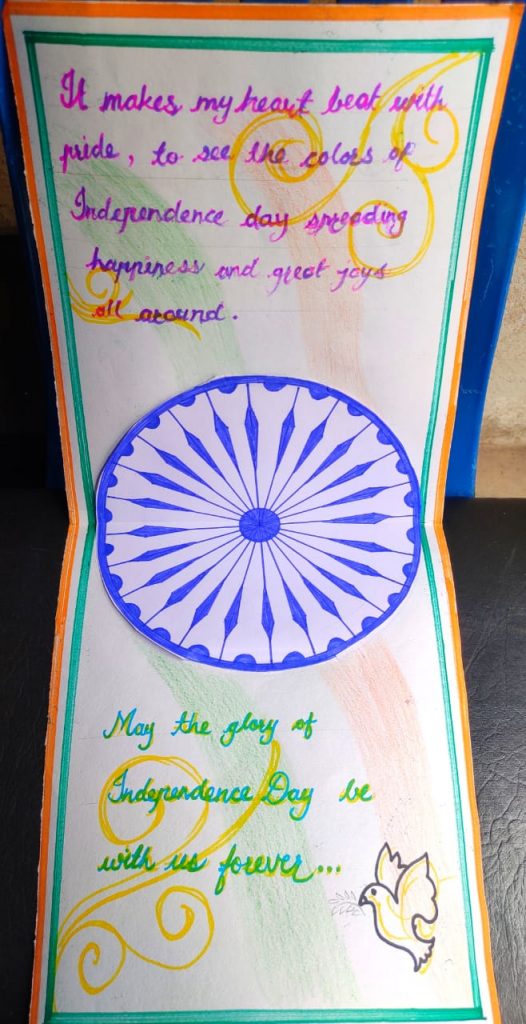 It makes my heart beat with
pride, to see the colors of
Independence day spreading
happiness and great joys
all around.
May the glory of
Independence Day be
with us forever...